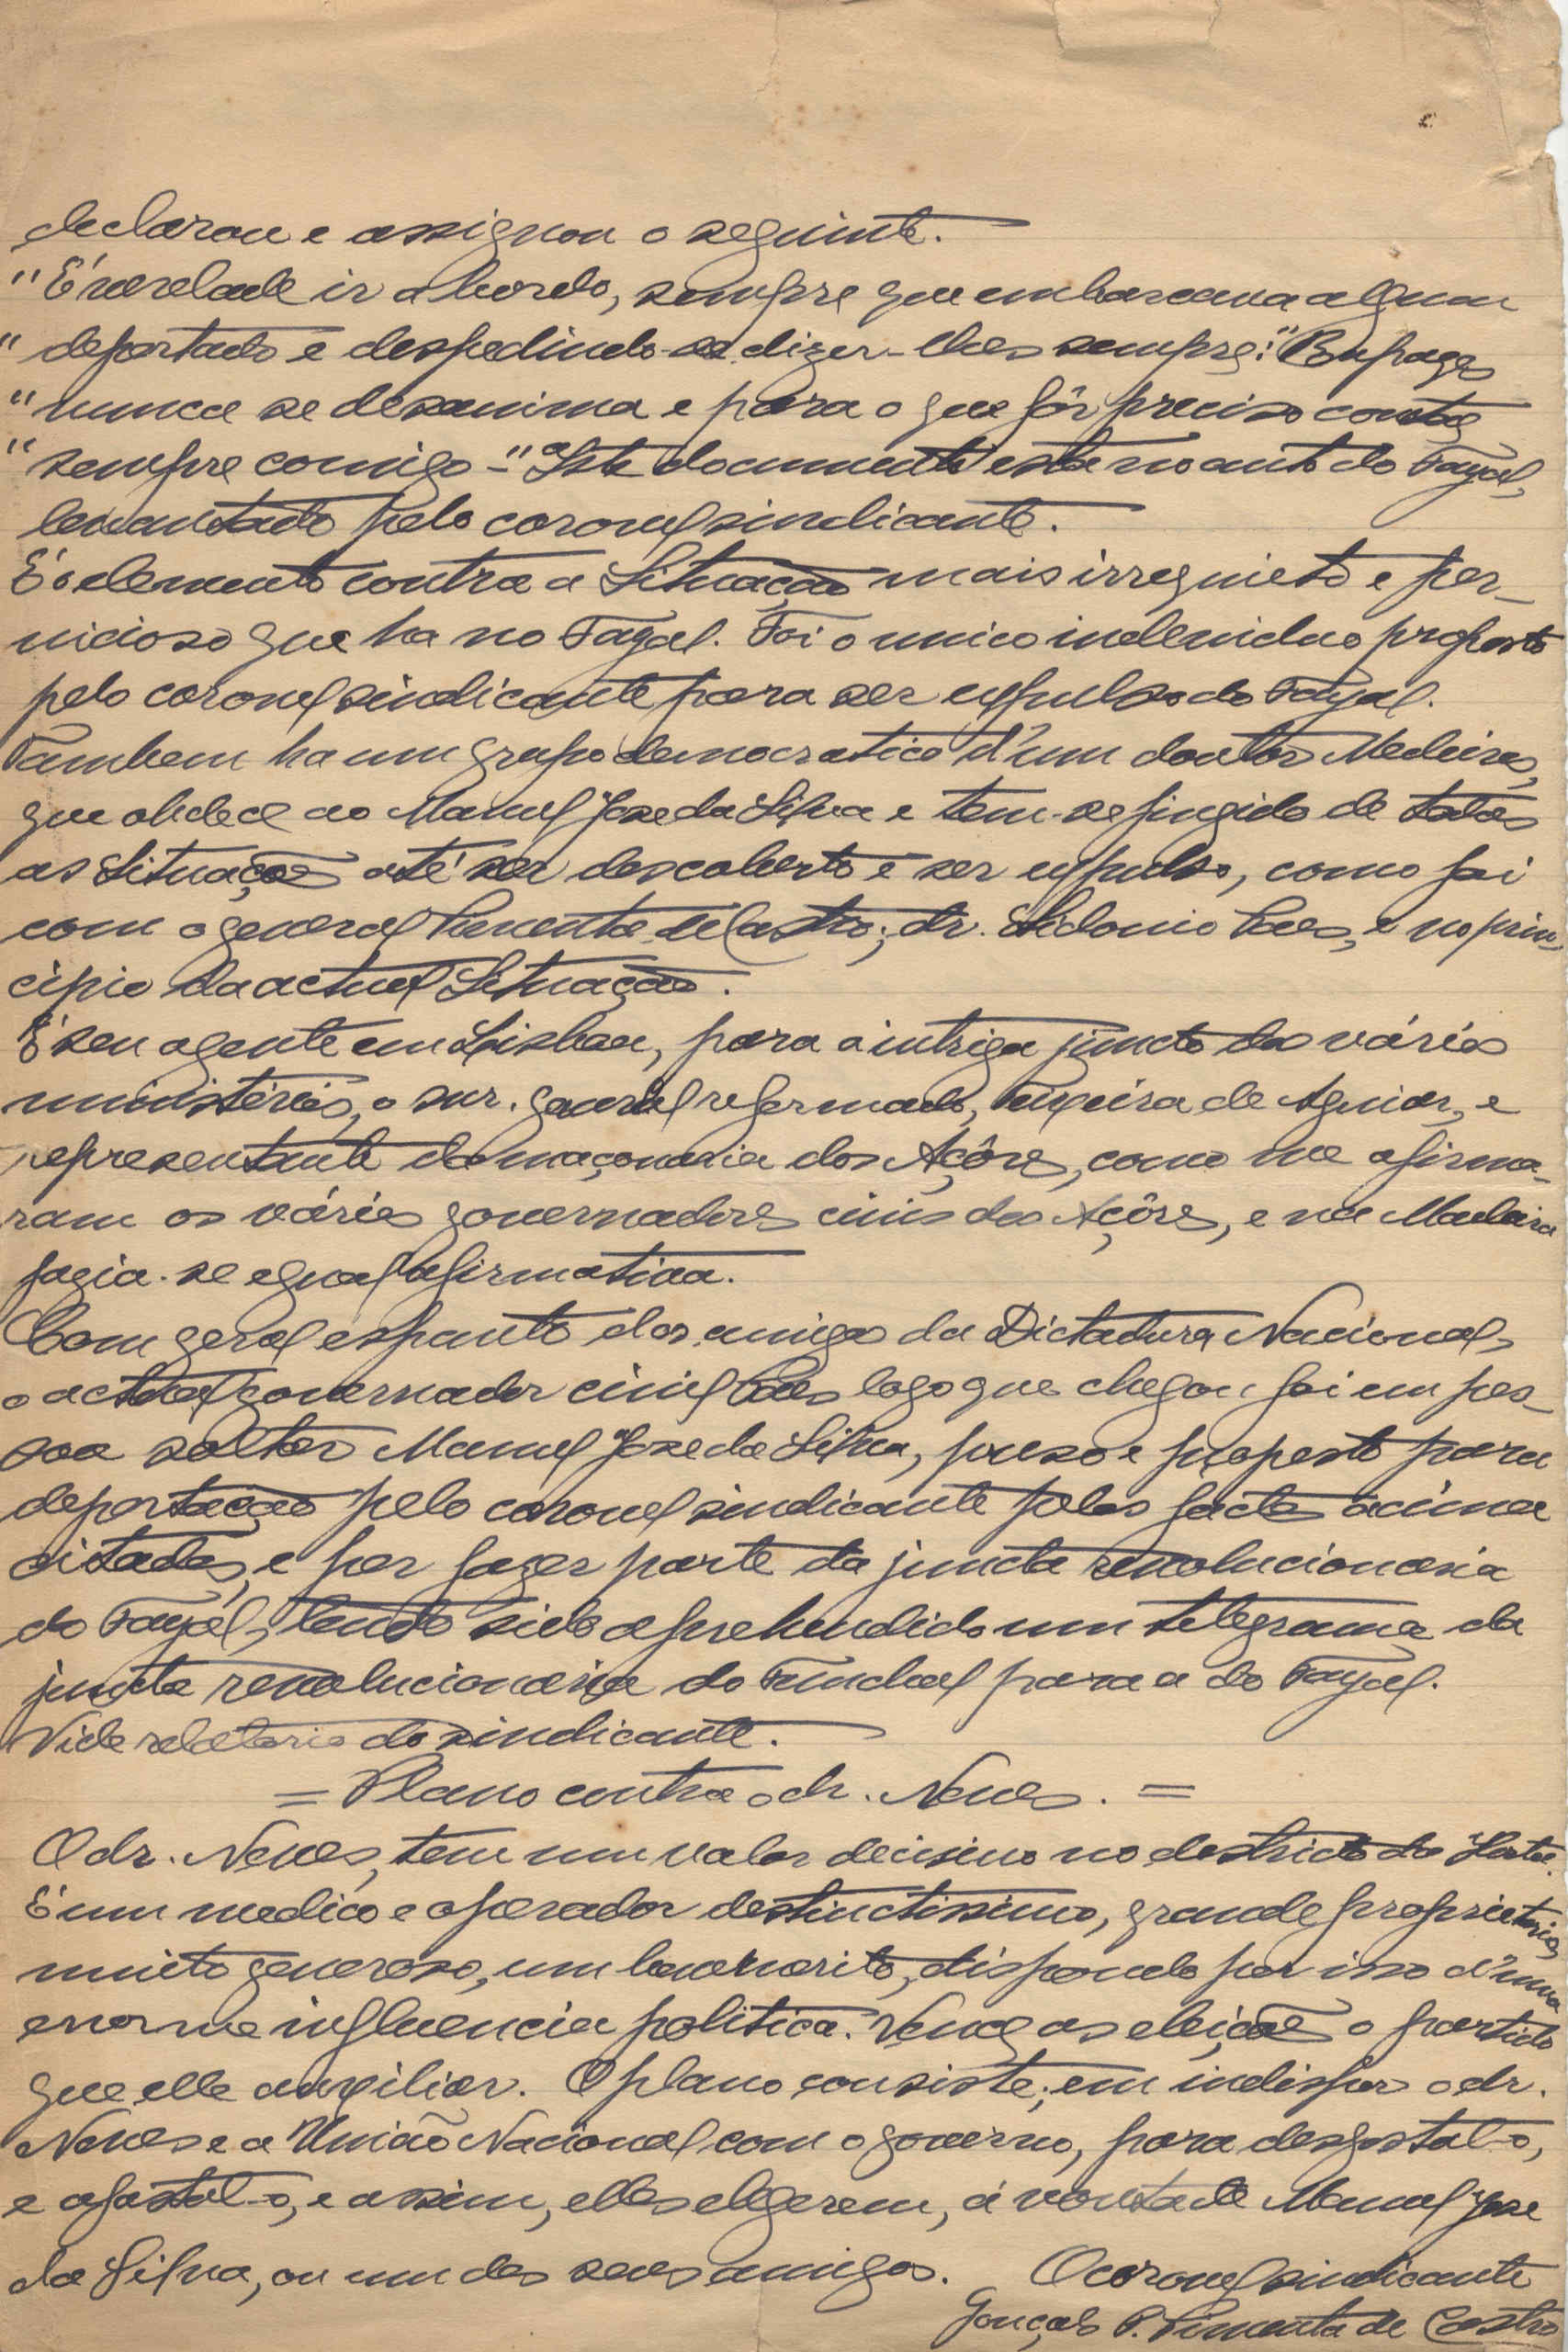 declarou e assignou o seguinte.
"É verdade ir a bordo, sempre que embarcava algum
"deportado e despedindo-se dizer-lhes sempre: "Rapazes
"nunca se desanima e para o que fôr preciso conte
"sempre comigo-" Este documento está no auto do Fayal,
levantado pelo coronel sindicante.
É o elemento contra a Situação mais irrequieto e per-
nicioso que ha no Fayal. Foi o unico individuo proposto
pelo coronel sindicante para ser expulso do Fayal.
Tambem ha um grupo democratico d'um doutor Medeiros,
que obdece ao Manuel Jose da Silva e tem-se fingido de todas
as Situações até ser descoberto e ser expulso, como foi
com o general Pimenta de Castro; dr. Sidonio Paes, e no prin-
cipio da actual Situação.
É seu agente em Lisboa, para a intriga juncto dos vários
ministérios, o snr. general refermado, Teixeira de Aguiar, e
representante da maçonaria dos Açôres, como me afirma-
ram os vários governadores civis dos Açôres, e na Madeira
fazia-se egual afirmativa.
Com geral espanto dos amigos da Dictadura Nacional,
o actual governador civil Paes logo que chegou foi em pes-
soa soltar Manuel Jose da Silva, preso e proposto para
deportação pelo coronel sindicante pelos factos acima
citados, e por fazer parte da juncta revolucionaria
do Fayal, tendo sido aprehendido um telegrama da
juncta revolucionaria do Funchal para a do Fayal.
Vide relatorio do sindicante.
= Plano contra o dr. Neves. =
O dr. Neves, tem um valor decisivo no destricto da Horta.
É um medico e operador destinctissimo, grande proprietario,
muito generoso, um benemerito, dispondo por isso d'uma
enorme influencia politica. Vence as eleições o partido
que elle auxiliar. O plano consiste, em indispor o dr.
Neves e a União Nacional com o governo, para desgostal-o,
e afastal-o, e assim, elles elegerem, á vontade Manuel Jose
da Silva, ou um dos seus amigos. O coronel sindicante
Gonçalo P. Pimenta de Castro